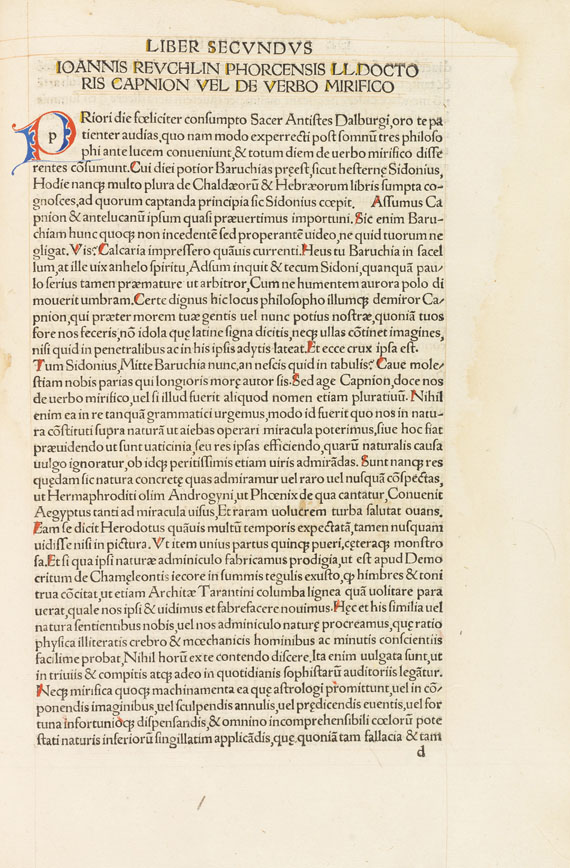 LIBER SECVNDVS
IOANNIS REVCHLIN PHORCENSIS LL.DOCTO
RIS CAPNION VEL DE VERBO MIRIFICO
PRiori die fœliciter consumpto Sacer Antistes Dalburgi,oro te pa
tienter audias,quo nam modo experrecti post somnū tres philoso
phi ante lucem conueniunt,& totum diem de uerbo mirifico disse
rentes cōsumunt.Cui diei potior Baruchias pręest,sicut hesternę Sidonius,
Hodie nanq; multo plura de Chaldæorū & Hebræorum libris sumpta co-
gnosces,ad quorum captanda principia sic Sidonius cœpit. Assumus Ca
pnion & antelucanū ipsum quasi præuertimus importuni. Sic enim Baru-
chiam hunc quoq; non incedentē sed properantē uideo,ne quid tuorum ne
gligat.Vis? Calcaria impressero quāuis currenti.Heus tu Baruchia in sacel
lum,at ille uix anhelo spiritu,Adsum inquit & tecum Sidoni,quanquā pau/
lo serius tamen præmature ut arbitror,Cum ne humentem aurora polo di
mouerit umbram.Certe dignus hic locus philosopho illumq; demiror Ca/
pnion,qui præter morem tuæ gentis uel nunc potius nostræ,quoniā tuos
fore nos feceris,nō idola quę latine signa dicitis,neq; ullas cōtinet imagines,
nisi quid in penetralibus ac in his ipsis adytis lateat.Et ecce crux ipsa est.
Tum Sidonius,Mitte Baruchia nunc,an nescis quid in tabulis? Caue mole/
stiam nobis parias qui longioris morę autor sis.Sed age Capnion,doce nos
de uerbo mirifico,uel si illud fuerit aliquod nomen etiam pluratiuū. Nihil
enim ea in re tanquā grammatici urgemus,modo id fuerit quo nos in natu-
ra cōstituti supra naturā ut aiebas operari miracula poterimus,siue hoc fiat
præuidendo ut sunt uaticinia,seu res ipsas efficiendo,quarū naturalis causa
uulgo ignoratur,ob idq; peritissimis etiam uiris admirādas. Sunt nanq; res
quędam sic natura concretę quas admiramur uel raro uel nusquā cōspectas,
ut Hermaphroditi olim Androgyni,ut Phœnix de qua cantatur,Conuenit
Aegyptus tanti ad miracula uisus,Et raram uolucrem turba salutat ouans.
Eam se dicit Herodotus quāuis multū temporis expectatā,tamen nusquam
uidisse nisi in pictura. Vt item unius partus quinq; pueri,cęteraq; monstro
sa.Et si qua ipsi naturæ adminiculo fabricamus prodigia,ut est apud Demo
critum de Chamęleontis iecore in summis tegulis exusto,q̄ himbres & toni
trua cōcitat,ut etiam Architæ Tarantini columba lignea quā uolitare para
uerat,quale nos ipsi & uidimus et fabrefacere nouimus.Hęc et his similia uel
natura sentientibus nobis,uel nos adminiculo naturę procreamus,quę ratio
physica illiteratis crebro & mœchanicis hominibus ac minutis conscientiis
facilime probat,Nihil horū ex te contendo discere,Ita enim uulgata sunt,ut
in triuiis & compitis atq; adeo in quotidianis sophistarū auditoriis legātur.
Neq; mirifica quoq; machinamenta ea quę astrologi promittunt,uel in cō/
ponendis imaginibus,uel sculpendis annulis,uel prędicendis euentis,uel for
tuna infortunioq; dispensandis,& omnino incomprehensibili cœlorū pote
stati naturis inferiorū singillatim applicādis,quę quoniā tam fallacia & tam
d